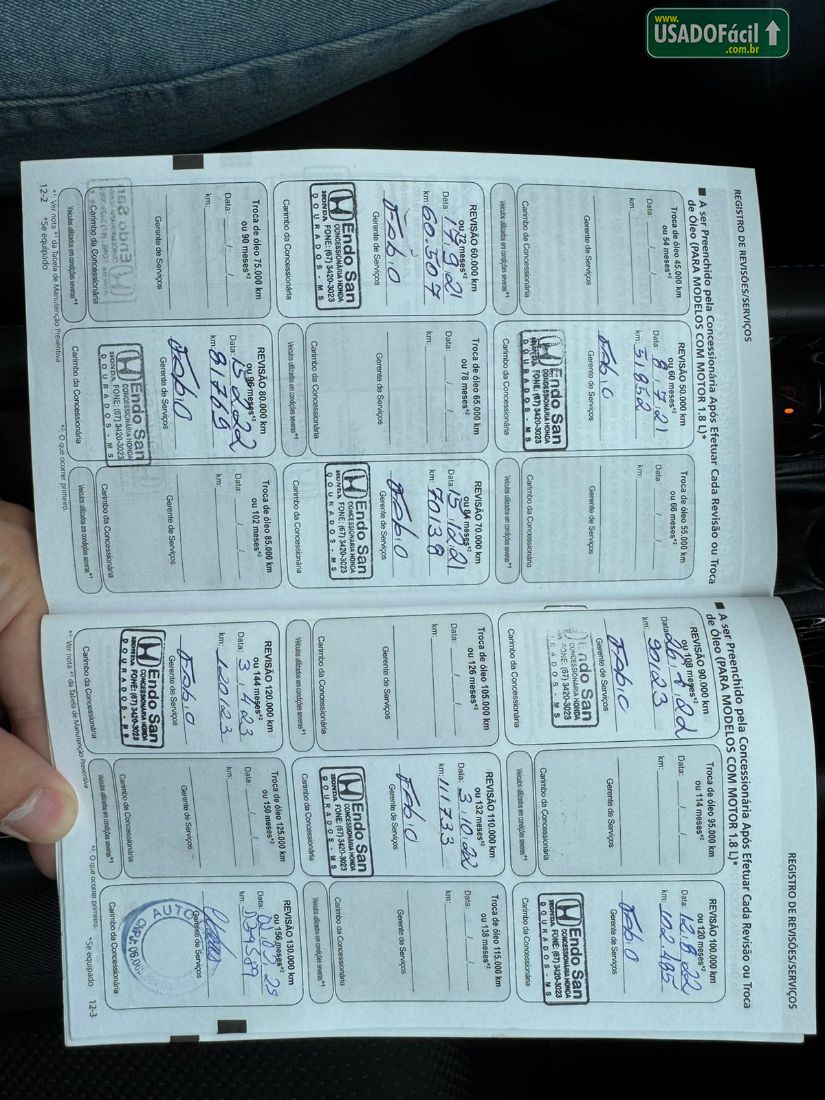 www.
USADOFácil
.com.br
REGISTRO DE REVISÕES/SERVIÇOS
■ A ser Preenchido pela Concessionária Após Efetuar Cada Revisão ou Troca
de Óleo (PARA MODELOS COM MOTOR 1.8 L)*
Troca de óleo 45.000 km
ou 54 meses*²
Data: / /
km:
Gerente de Serviços
Carimbo da Concessionária
Veículos utilizados em condições severas*¹
REVISÃO 50.000 km
ou 60 meses*²
Data: 8 7 21
km: 51852
Fabio
Gerente de Serviços
Endo San
CONCESSIONÁRIA HONDA
HONDA FONE: (67) 3420-3023
DOURADOS - MS
Troca de óleo 55.000 km
ou 66 meses*²
Data: / /
km:
Gerente de Serviços
Carimbo da Concessionária
Veículos utilizados em condições severas*¹
REVISÃO 60.000 km
ou 72 meses*²
Data: 17 9 21
km: 60.507
Fabio
Gerente de Serviços
Endo San
CONCESSIONÁRIA HONDA
HONDA FONE: (67) 3420-3023
DOURADOS - MS
Troca de óleo 65.000 km
ou 78 meses*²
Data: / /
km:
Gerente de Serviços
Carimbo da Concessionária
Veículos utilizados em condições severas*¹
REVISÃO 70.000 km
ou 84 meses*²
Data: 15 12 21
km: 70138
Fabio
Gerente de Serviços
Endo San
CONCESSIONÁRIA HONDA
HONDA FONE: (67) 3420-3023
DOURADOS - MS
Troca de óleo 75.000 km
ou 90 meses*²
Data: / /
km:
Gerente de Serviços
Carimbo da Concessionária
Veículos utilizados em condições severas*¹
REVISÃO 80.000 km
ou 96 meses*²
Data: 15 2 22
km: 81765
Fabio
Gerente de Serviços
Endo San
CONCESSIONÁRIA HONDA
HONDA FONE: (67) 3420-3023
DOURADOS - MS
Carimbo da Concessionária
Troca de óleo 85.000 km
ou 102 meses*²
Data: / /
km:
Gerente de Serviços
Carimbo da Concessionária
Veículos utilizados em condições severas*¹
*¹: Ver nota *¹ da Tabela de Manutenção Preventiva
*²: O que ocorrer primeiro.
12-2
*Se equipado
REGISTRO DE REVISÕES/SERVIÇOS
■ A ser Preenchido pela Concessionária Após Efetuar Cada Revisão ou Troca
de Óleo (PARA MODELOS COM MOTOR 1.8 L)*
REVISÃO 90.000 km
ou 108 meses*²
Data:
km:
Fabio
Gerente de Serviços
Endo San
CONCESSIONÁRIA HONDA
FONE: (67) 3420-3023
DOURADOS - MS
Troca de óleo 95.000 km
ou 114 meses*²
Data: / /
km:
Gerente de Serviços
Carimbo da Concessionária
Veículos utilizados em condições severas*¹
REVISÃO 100.000 km
ou 120 meses*²
Data: 12 8 22
km: 102.485
Fabio
Gerente de Serviços
Endo San
CONCESSIONÁRIA HONDA
HONDA FONE: (67) 3420-3023
DOURADOS - MS
Troca de óleo 105.000 km
ou 126 meses*²
Data: / /
km:
Gerente de Serviços
Carimbo da Concessionária
Veículos utilizados em condições severas*¹
REVISÃO 110.000 km
ou 132 meses*²
Data: 3 10 22
km: 111733
Fabio
Gerente de Serviços
Endo San
CONCESSIONÁRIA HONDA
HONDA FONE: (67) 3420-3023
DOURADOS - MS
Troca de óleo 115.000 km
ou 138 meses*²
Data: / /
km:
Gerente de Serviços
Carimbo da Concessionária
Veículos utilizados em condições severas*¹
REVISÃO 120.000 km
ou 144 meses*²
Data: 3 1 23
km: 120123
Fabio
Gerente de Serviços
Endo San
CONCESSIONÁRIA HONDA
HONDA FONE: (67) 3420-3023
DOURADOS - MS
Carimbo da Concessionária
Troca de óleo 125.000 km
ou 150 meses*²
Data: / /
km:
Gerente de Serviços
Carimbo da Concessionária
Veículos utilizados em condições severas*¹
REVISÃO 130.000 km
ou 156 meses*²
Data:
km:
Gerente de Serviços
AUTO
Carimbo da Concessionária
*¹: Ver nota *¹ da Tabela de Manutenção Preventiva
*²: O que ocorrer primeiro.
*Se equipado
12-3